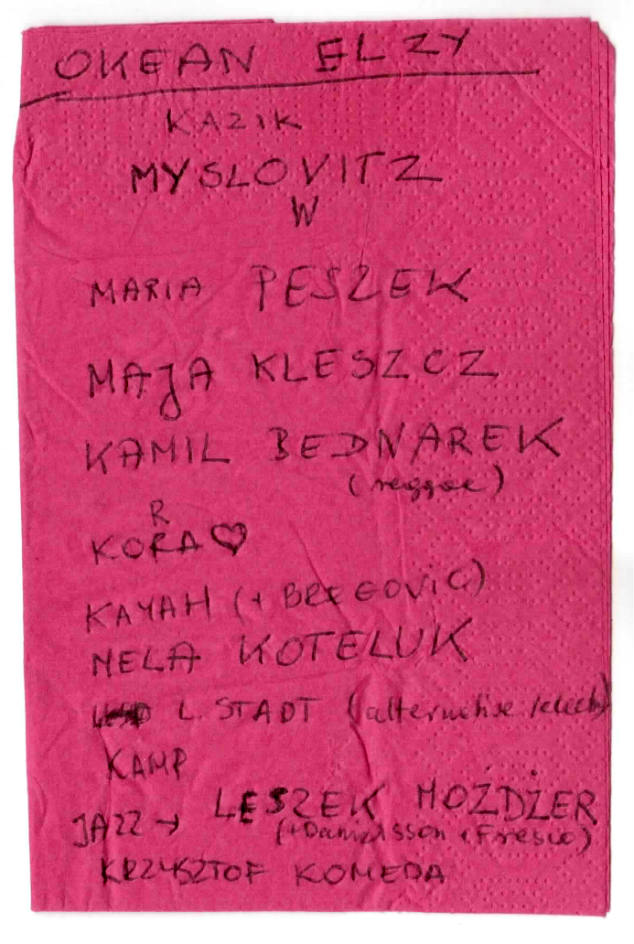 OKEAN ELZY
KAZIK
MYSLOVITZ
W
MARIA PESZEK
MAJA KLESZCZ
KAMIL BEDNAREK
(reggae)
R
KORA ♡
KAYAH (+ BREGOVIC)
MELA KOTELUK
L. STADT (alternative /elect)
KAMP
JAZZ → LESZEK MOŻDŻER
(+Danielsson + Fresco)
KRZYSZTOF KOMEDA